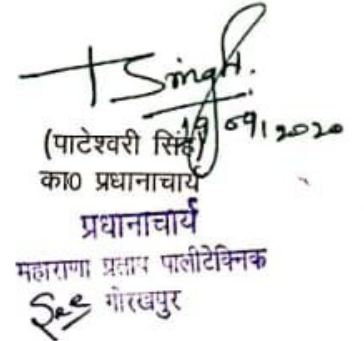 Singh.
19/09/2020
(पाटेश्वरी सिंह)
का0 प्रधानाचार्य
प्रधानाचार्य
महाराणा प्रताप पालीटेक्निक
गोरखपुर